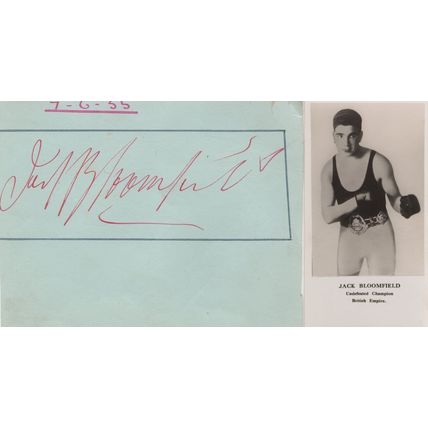 7-6-55
Jack Bloomfield
JACK BLOOMFIELD
Undefeated Champion
British Empire.